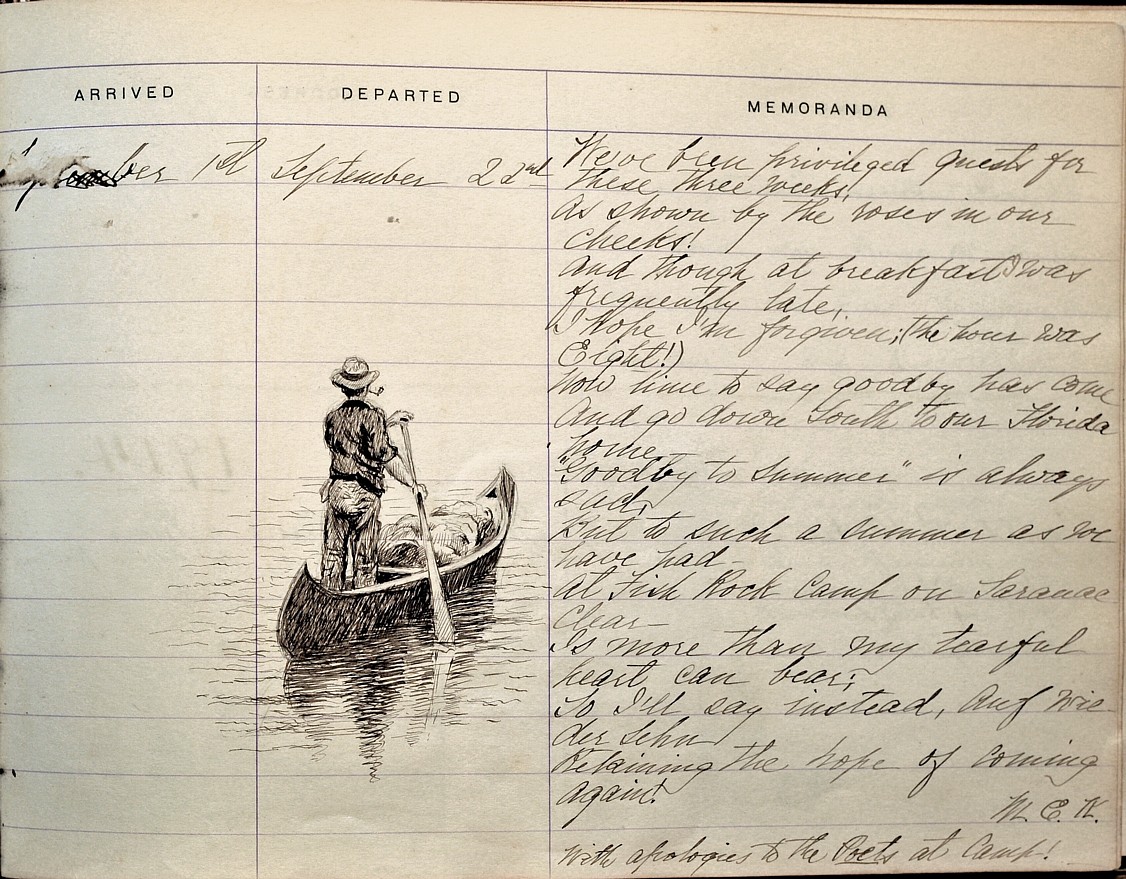 ARRIVED DEPARTED MEMORANDA
September 1st September 22nd
We've been privileged guests for
these three weeks,
As shown by the roses in our
cheeks!
And though at breakfast I was
frequently late,
I hope I'm forgiven; (the hour was
Eight!)
Now time to say goodby has come
And go down South to our Florida
home,
"Goodby to summer" is always
sad,
But to such a summer as we
have had
At Fish Rock Camp on Saranac
Clear
Is more than my tearful
heart can bear;
So I'll say instead, Auf Wie-
der Sehn
Retaining the hope of coming
again!
M. E. K.
With apologies to the Poets at Camp!
1914